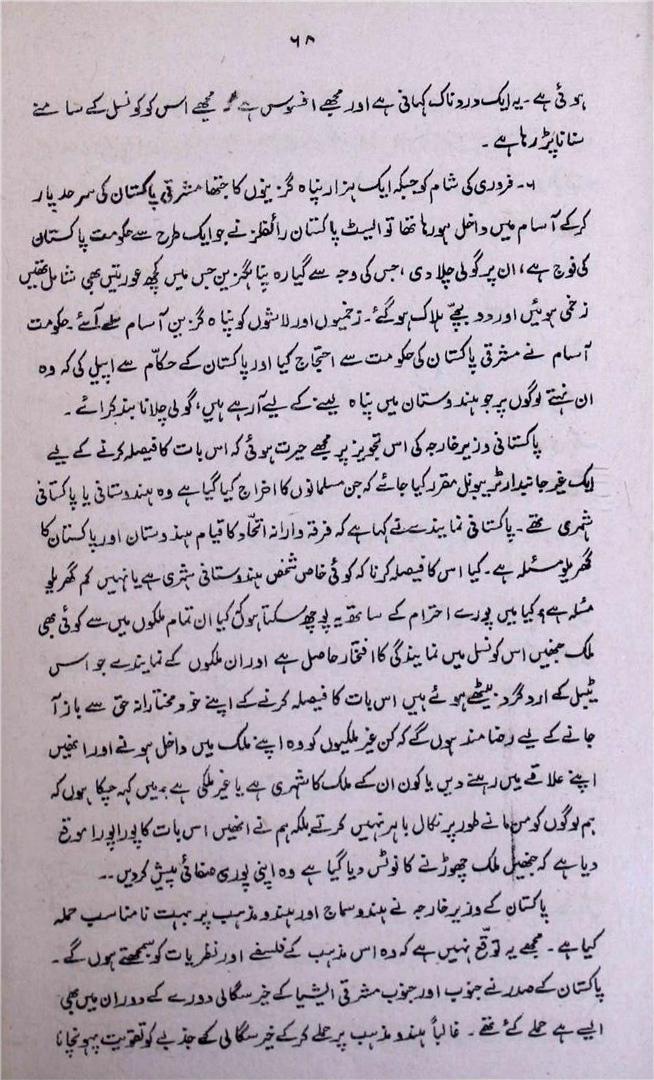 ۶۸
ہوئی ہے۔ یہ ایک دردناک کہانی ہے اور مجھے افسوس ہے کہ مجھے اس کو کونسل کے سامنے
سنانا پڑ رہا ہے۔
۶۔ فروری کی شام کو جبکہ ایک ہزار پناہ گزینوں کا جتھا مشرقی پاکستان کی سرحد پار
کرکے آسام میں داخل ہو رہا تھا تو ایسٹ پاکستان رائفلز نے جو ایک طرح سے حکومت پاکستان
کی فوج ہے، ان پر گولی چلا دی، جس کی وجہ سے گیارہ پناہ گزین جس میں کچھ عورتیں بھی شامل تھیں
زخمی ہوئیں اور دو بچے ہلاک ہو گئے۔ زخمیوں اور لاشوں کو پناہ گزین آسام لے آئے۔ حکومت
آسام نے مشرقی پاکستان کی حکومت سے احتجاج کیا اور پاکستان کے حکام سے اپیل کی کہ وہ
ان نہتے لوگوں پر جو ہندوستان میں پناہ لینے کے لیے آ رہے ہیں، گولی چلانا بند کرائے۔
پاکستانی وزیر خارجہ کی اس تجویز پر مجھے حیرت ہوئی کہ اس بات کا فیصلہ کرنے کے لیے
ایک غیر جانبدار ٹریبونل مقرر کیا جائے کہ جن مسلمانوں کا اخراج کیا گیا ہے وہ ہندوستانی یا پاکستانی
شہری تھے۔ پاکستانی نمایندے نے کہا ہے کہ فرقہ وارانہ اتحاد کا قیام ہندوستان اور پاکستان کا
گھریلو مسئلہ ہے۔ کیا اس کا فیصلہ کرنا کہ کوئی خاص شخص ہندوستانی شہری ہے یا نہیں کم گھریلو
مسئلہ ہے؟ کیا میں پورے احترام کے ساتھ یہ پوچھ سکتا ہوں کہ کیا ان تمام ملکوں میں سے کوئی بھی
ملک جنھیں اس کونسل میں نمایندگی کا افتخار حاصل ہے اور ان ملکوں کے نمایندے جو اس
ٹیبل کے ارد گرد بیٹھے ہوئے ہیں اس بات کا فیصلہ کرنے کے اپنے خود مختارانہ حق سے باز آ
جانے کے لیے رضامند ہوں گے کہ کن غیر ملکیوں کو وہ اپنے ملک میں داخل ہونے اور انھیں
اپنے علاقے میں رہنے دیں یا کون ان کے ملک کا شہری ہے یا غیر ملکی ہے۔ میں کہہ چکا ہوں کہ
ہم لوگوں کو من مانے طور پر نکال باہر نہیں کرتے بلکہ ہم نے انھیں اس بات کا پورا پورا موقع
دیا ہے کہ جنھیں ملک چھوڑنے کا نوٹس دیا گیا ہے وہ اپنی پوری صفائی پیش کر دیں۔۔
پاکستان کے وزیر خارجہ نے ہندو سماج اور ہندو مذہب پر بہت نامناسب حملہ
کیا ہے۔ مجھے یہ توقع نہیں ہے کہ وہ اس مذہب کے فلسفے اور نظریات کو سمجھتے ہوں گے۔
پاکستان کے صدر نے جنوب اور جنوب مشرقی ایشیا کے خیر سگالی دورے کے دوران میں بھی
ایسے ہی حملے کئے تھے۔ غالباً ہندو مذہب پر حملے کرکے خیر سگالی کے جذبے کو تقویت پہونچانا